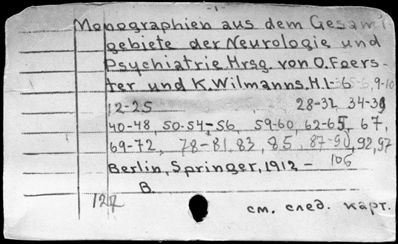 Monographien aus dem Gesamt
gebiete der Neurologie und
Psychiatrie Hrsg. von O. Foers-
ter und K. Wilmanns. H. 1- 6, 9-10
12-25 28-32 34-39
40-48, 50-54-56, 59-60, 62-65, 67,
69-72, 78-81, 83, 85, 87-90, 92, 97
Berlin, Springer, 1912 - 106
B.
127
см. след. карт.